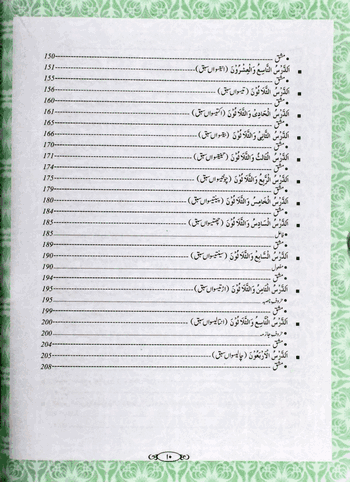 • مشق 150
اَلدَّرْسُ التَّاسِعُ وَالْعِشْرُوْنَ (انتیسواں سبق) 151
• مشق 155
اَلدَّرْسُ الثَّلَاثُوْنَ (تیسواں سبق) 156
• مشق 160
اَلدَّرْسُ الْحَادِیْ وَالثَّلَاثُوْنَ (اکتیسواں سبق) 161
• مشق 165
اَلدَّرْسُ الثَّانِیْ وَالثَّلَاثُوْنَ (بتیسواں سبق) 166
• مشق 170
اَلدَّرْسُ الثَّالِثُ وَالثَّلَاثُوْنَ (تینتیسواں سبق) 171
• مشق 174
اَلدَّرْسُ الرَّابِعُ وَالثَّلَاثُوْنَ (چونتیسواں سبق) 175
• مشق 179
اَلدَّرْسُ الْخَامِسُ وَالثَّلَاثُوْنَ (پینتیسواں سبق) 180
• مشق 184
اَلدَّرْسُ السَّادِسُ وَالثَّلَاثُوْنَ (چھتیسواں سبق) 185
• فاعل 185
• مشق 189
اَلدَّرْسُ السَّابِعُ وَالثَّلَاثُوْنَ (سینتیسواں سبق) 190
• مفعول 190
• مشق 194
اَلدَّرْسُ الثَّامِنُ وَالثَّلَاثُوْنَ (اڑتیسواں سبق) 195
• حروف ناصبہ 195
• مشق 199
اَلدَّرْسُ التَّاسِعُ وَالثَّلَاثُوْنَ (انتالیسواں سبق) 200
• حروف جازمہ 200
• مشق 204
اَلدَّرْسُ الْاَرْبَعُوْنَ (چالیسواں سبق) 205
• مشق 208
۱۰